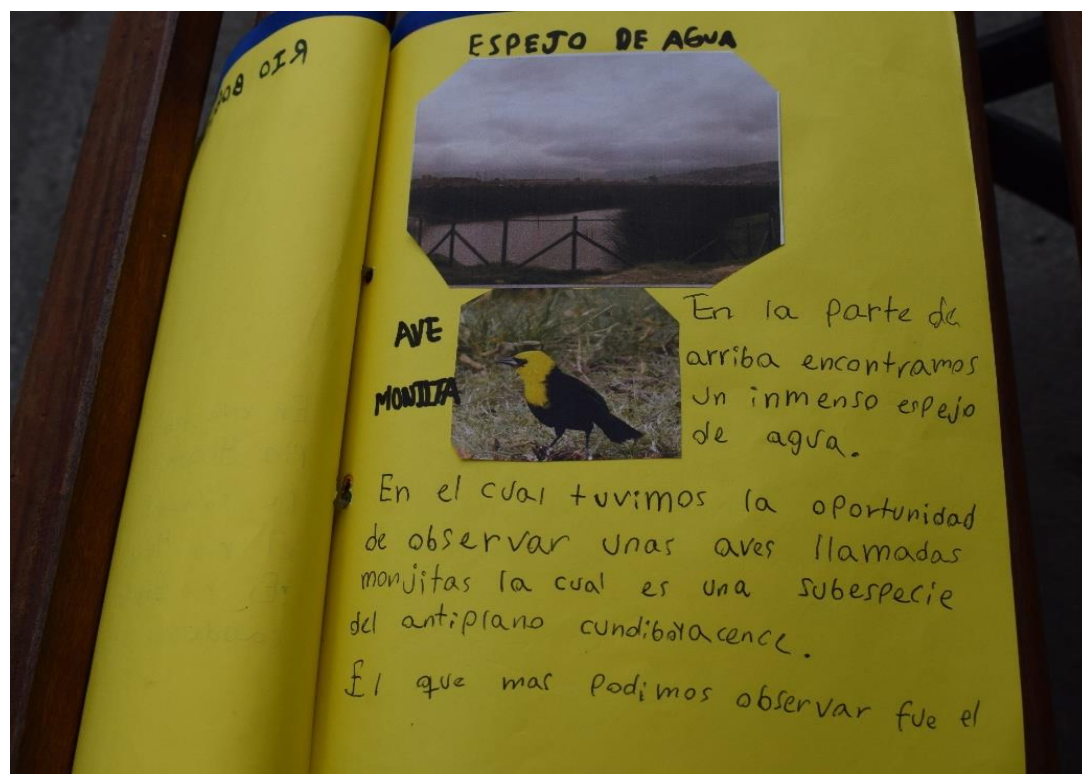 RIO
ESPEJO DE AGUA
AVE
MONJITA
En la parte de
arriba encontramos
un inmenso espejo
de agua.
En el cual tuvimos la oportunidad
de observar unas aves llamadas
monjitas la cual es una subespecie
del antiplano cundiboyacence.
El que mas Podimos observar fue el